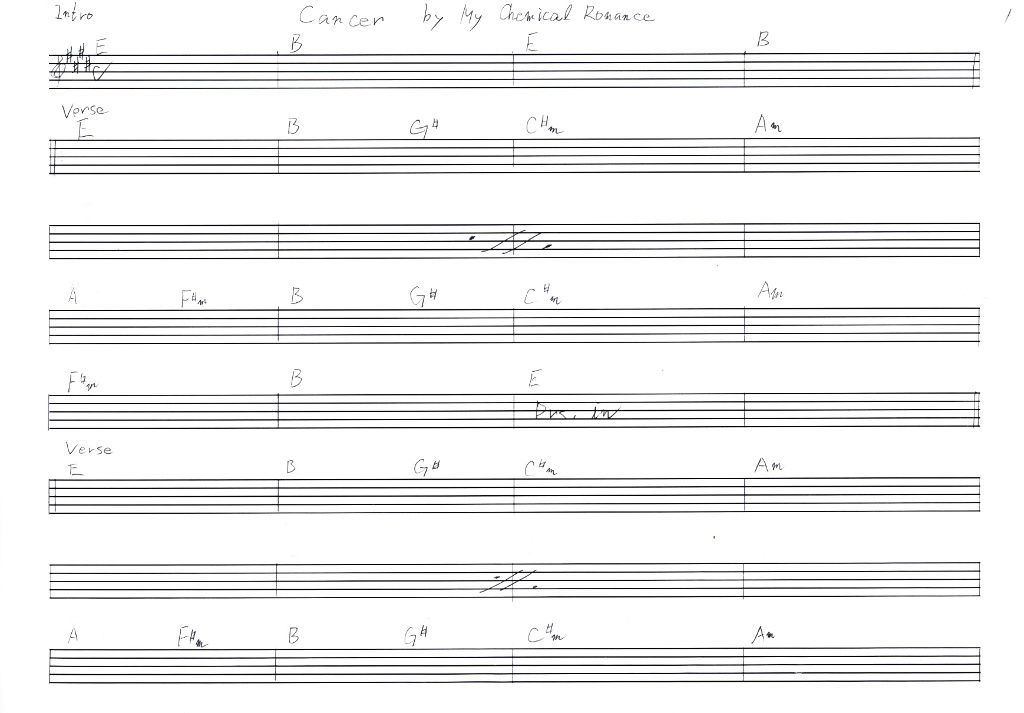 Intro Cancer by My Chemical Romance 1
E B E B
Verse
E B G# C#m Am
A F#m B G# C#m Am
F#m B E
Drs. in
Verse
E B G# C#m Am
A F#m B G# C#m Am